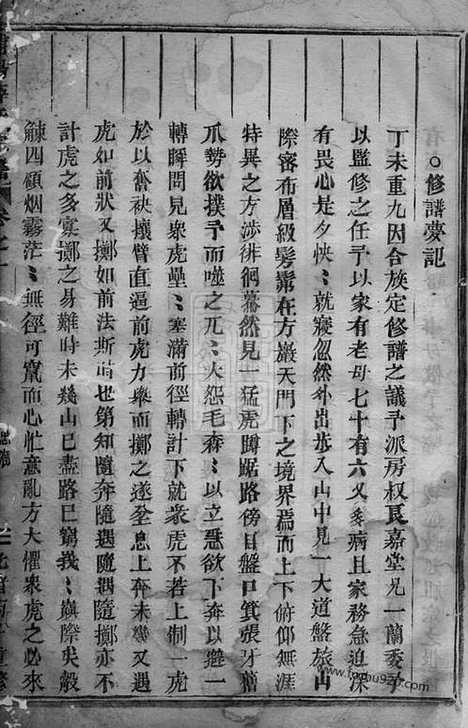 ○修譜夢記
丁未重九因合族定修譜之議予派房叔艮嘉堂兄一蘭委予
以監修之任予以家有老母七十有六又多病且家務急迫深
有畏心是夕怏〻就寢忽然外出步入山中見一大道盤旋山
際審布層級髣髴在方巖天門下之境界焉而上下俯仰無涯
特異之方涉徘徊驀然見一猛虎蹲踞路傍目盤口箕張牙舊
爪勢欲撲予而噬之兀〻火怨毛森〻以立急欲下奔以避一
轉瞬間見衆虎壘〻塞滿前徑轉計下就衆虎不若上制一虎
於以奮袂攘臂直逼前虎力舉而擲之遂至息上奔未幾又遇
虎如前狀又擲如前法斯時也第知隨奔隨遇隨遇隨擲亦不
計虎之多寡擲之身難時未幾山巳盡路巳窮我〻巔際尖觳
觫四顧烟霧茫〻無徑可竄而心忙意亂方大懼衆虎之必來
卷之一